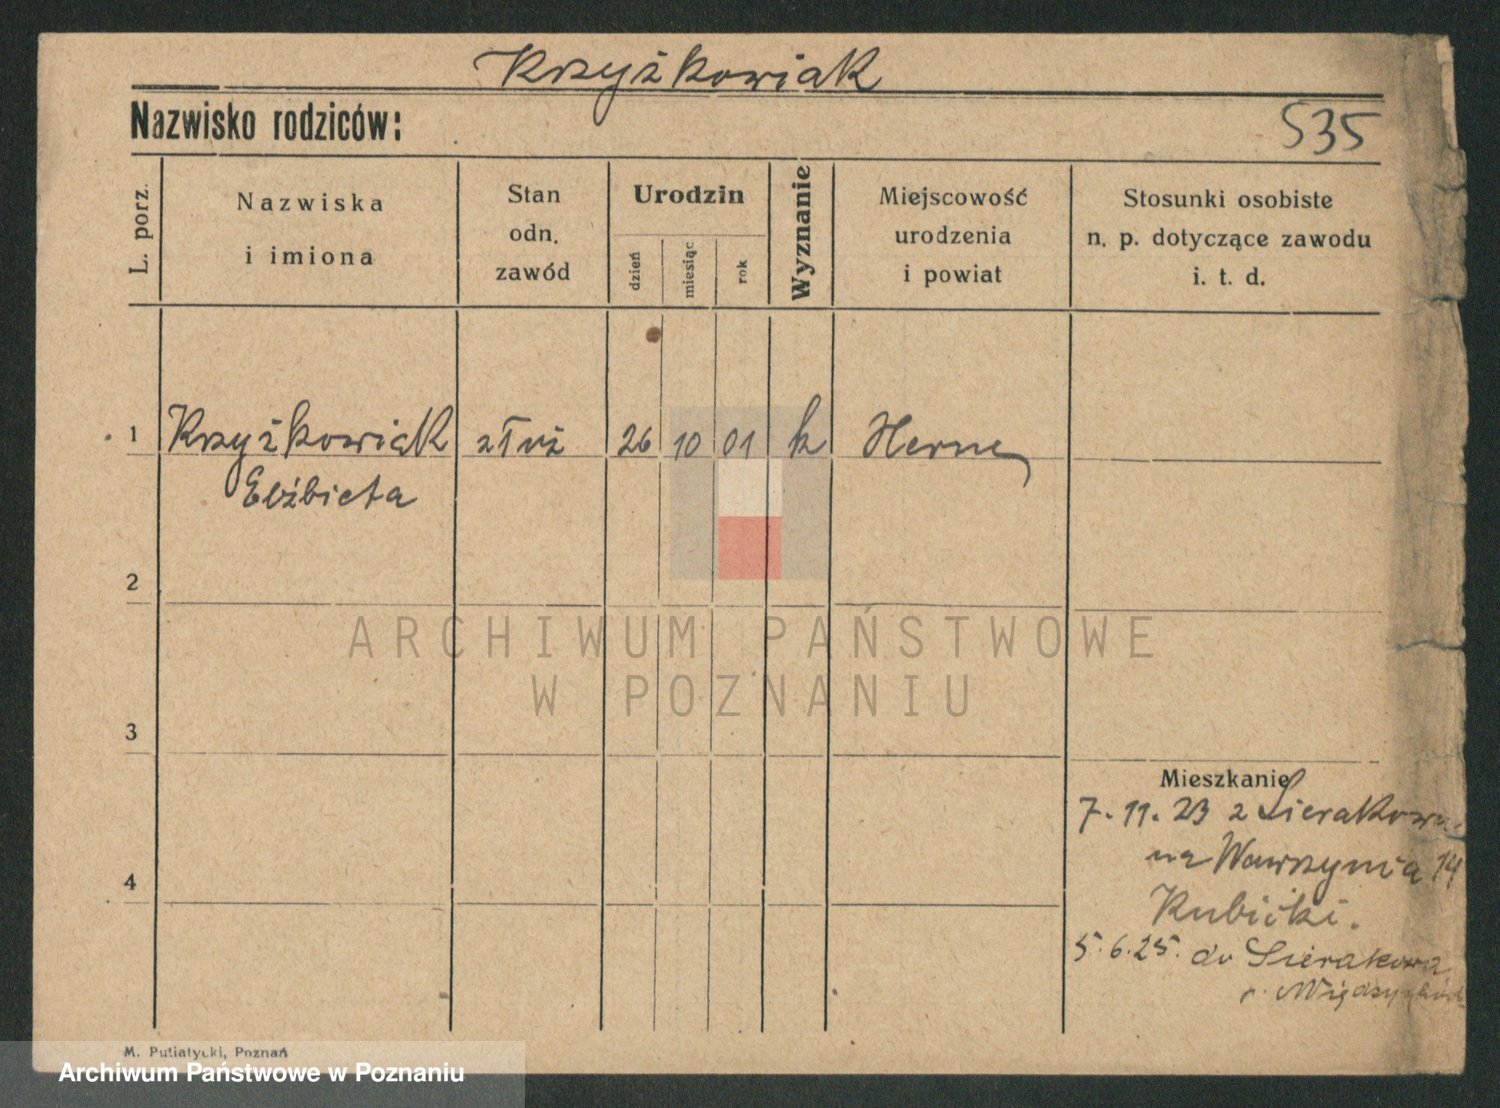 Krzyżkowiak
Nazwisko rodziców:
535
L. porz.
Nazwiska
i imiona
Stan
odn.
zawód
Urodzin
dzień
miesiąc
rok
Wyznanie
Miejscowość
urodzenia
i powiat
Stosunki osobiste
n. p. dotyczące zawodu
i. t. d.
1 Krzyżkowiak służ 26 10 01 k Herne
Elżbieta
2
ARCHIWUM PAŃSTWOWE
W POZNANIU
3
Mieszkanie
7. 11. 23 z Sierakowa
na Wawrzynia 14
4
Kubicki.
5. 6. 25. do Sierakowa
p. Międzychód
M. Putiatycki, Poznań
Archiwum Państwowe w Poznaniu